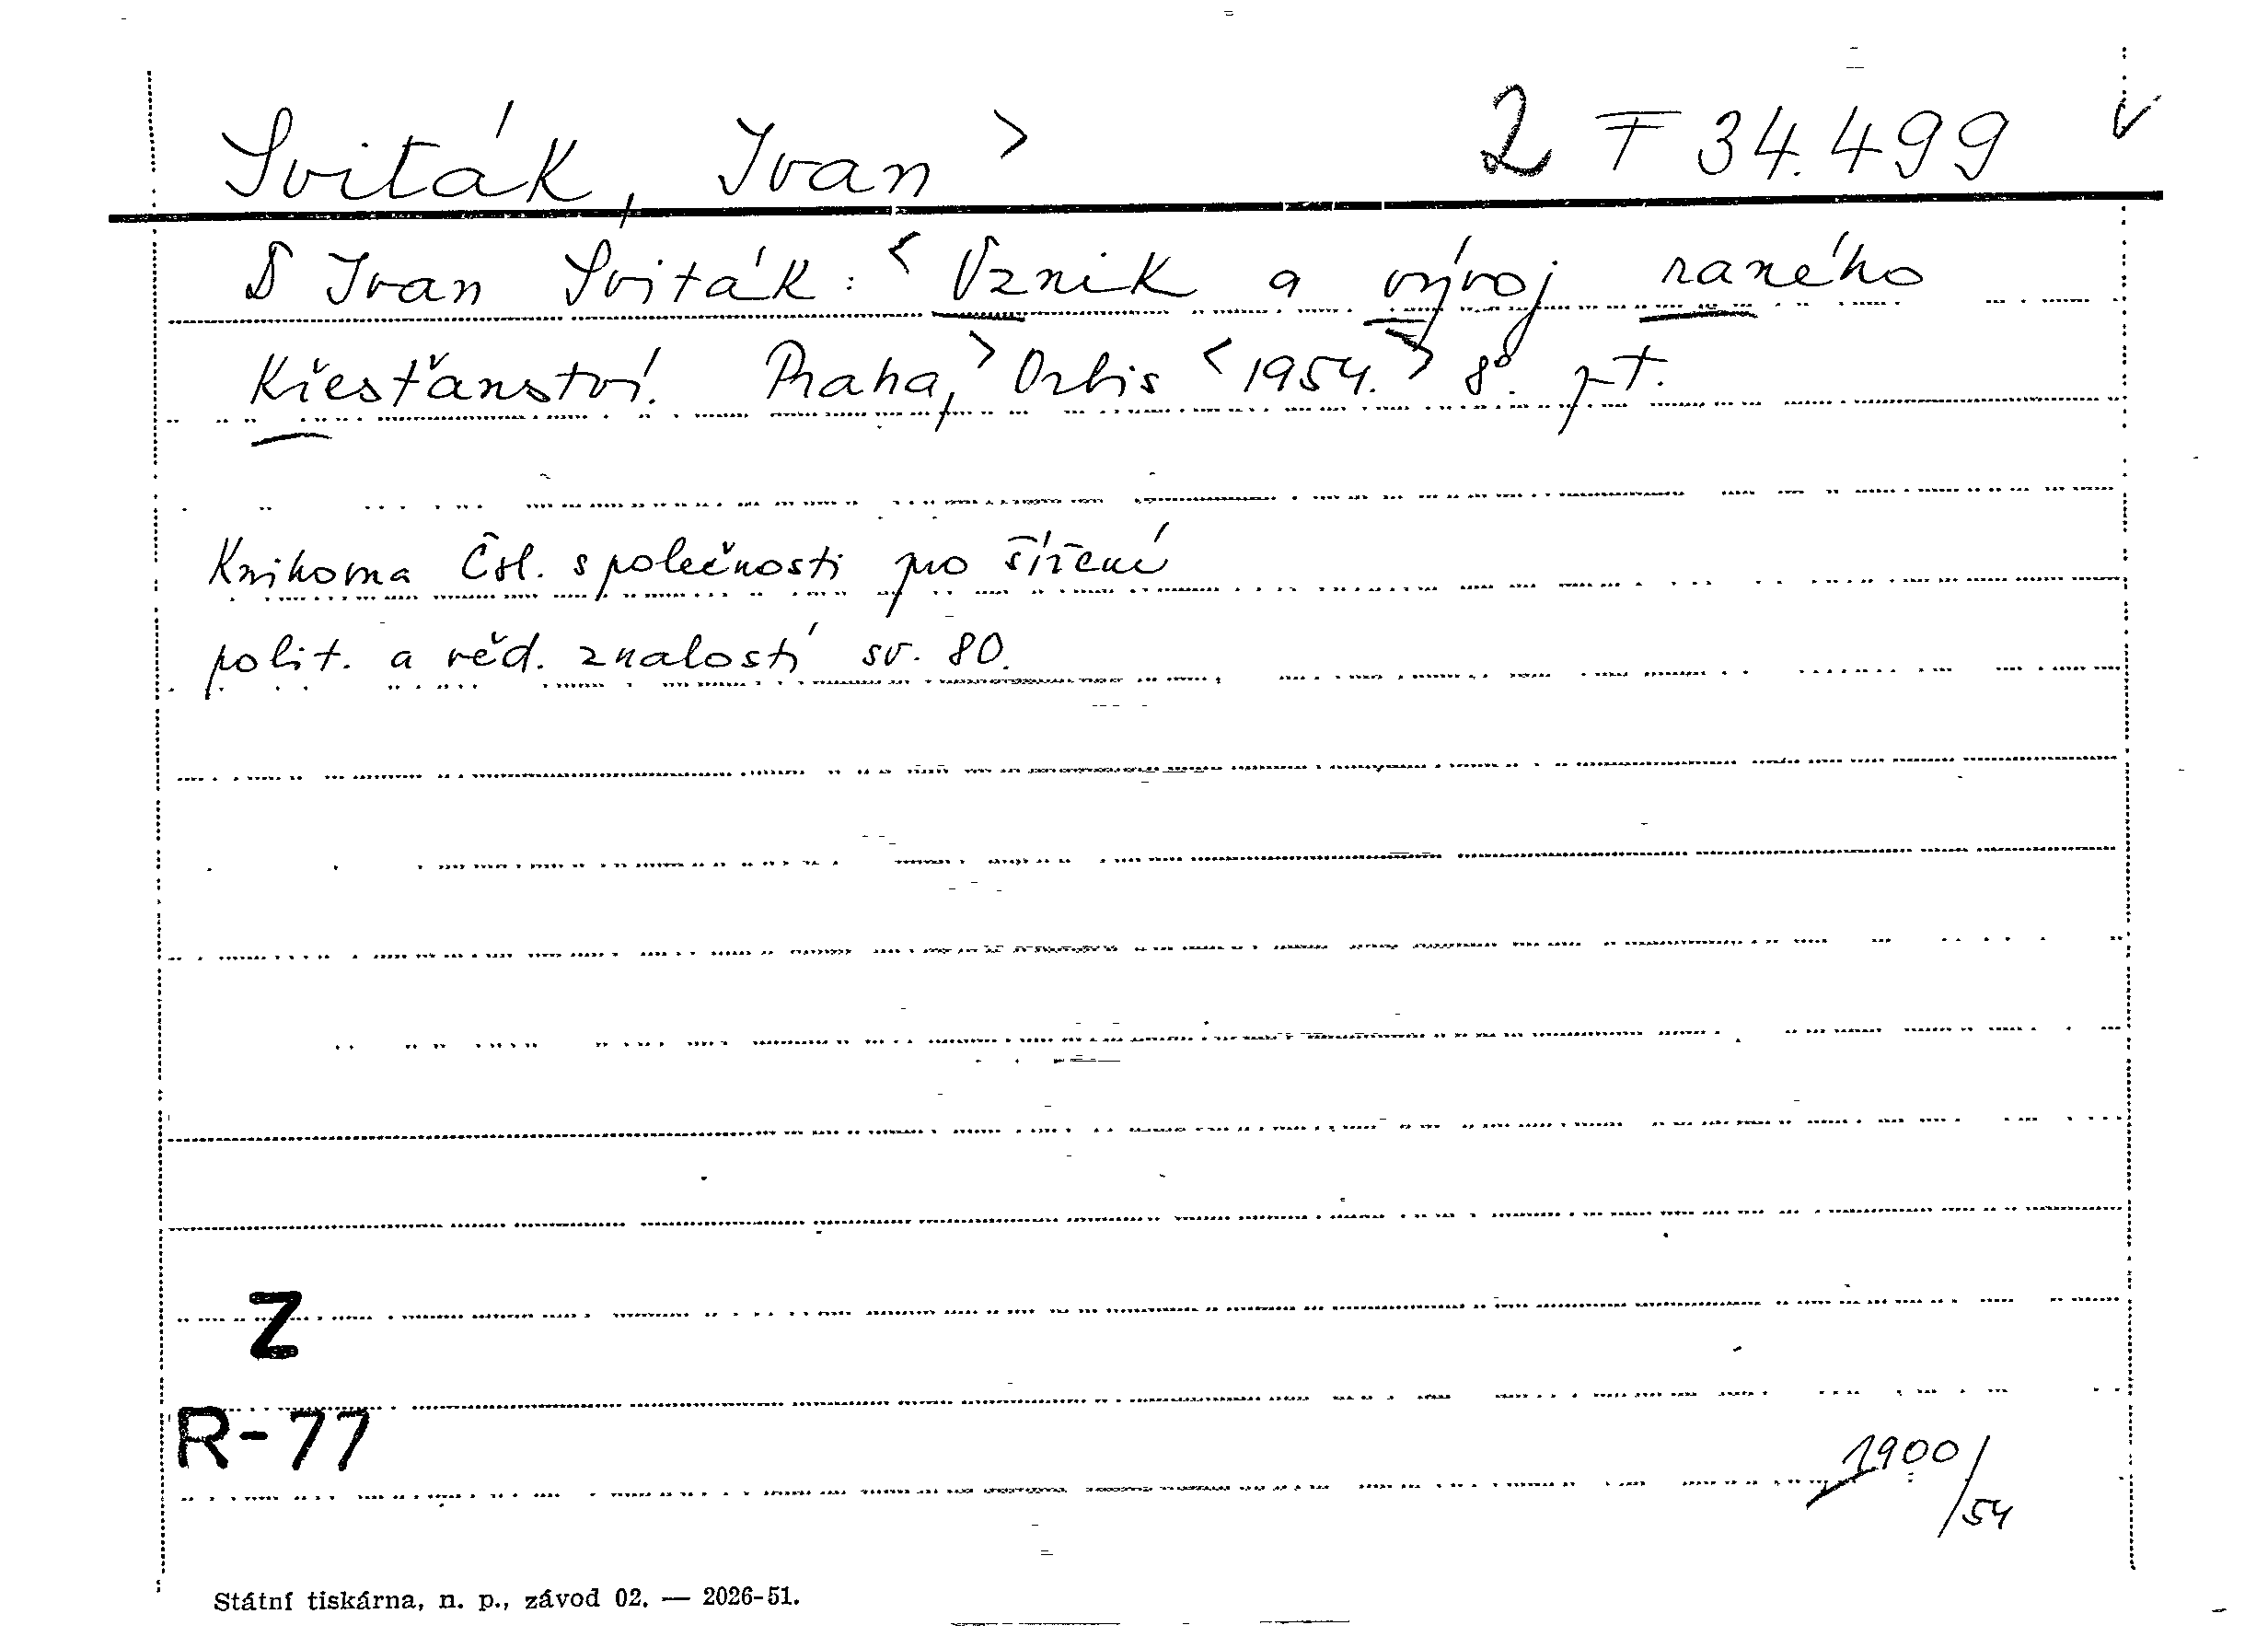 Sviták, Ivan > 2 F 34.499 v
Ivan Sviták: < Vznik a vývoj raného
křesťanství. Praha, > Orbis < 1954. > 8°. pt.
Knihovna Čsl. společnosti pro šíření
polit. a věd. znalostí sv. 80.
Z
R-77
1900/54
Státní tiskárna, n. p., závod 02. — 2026-51.